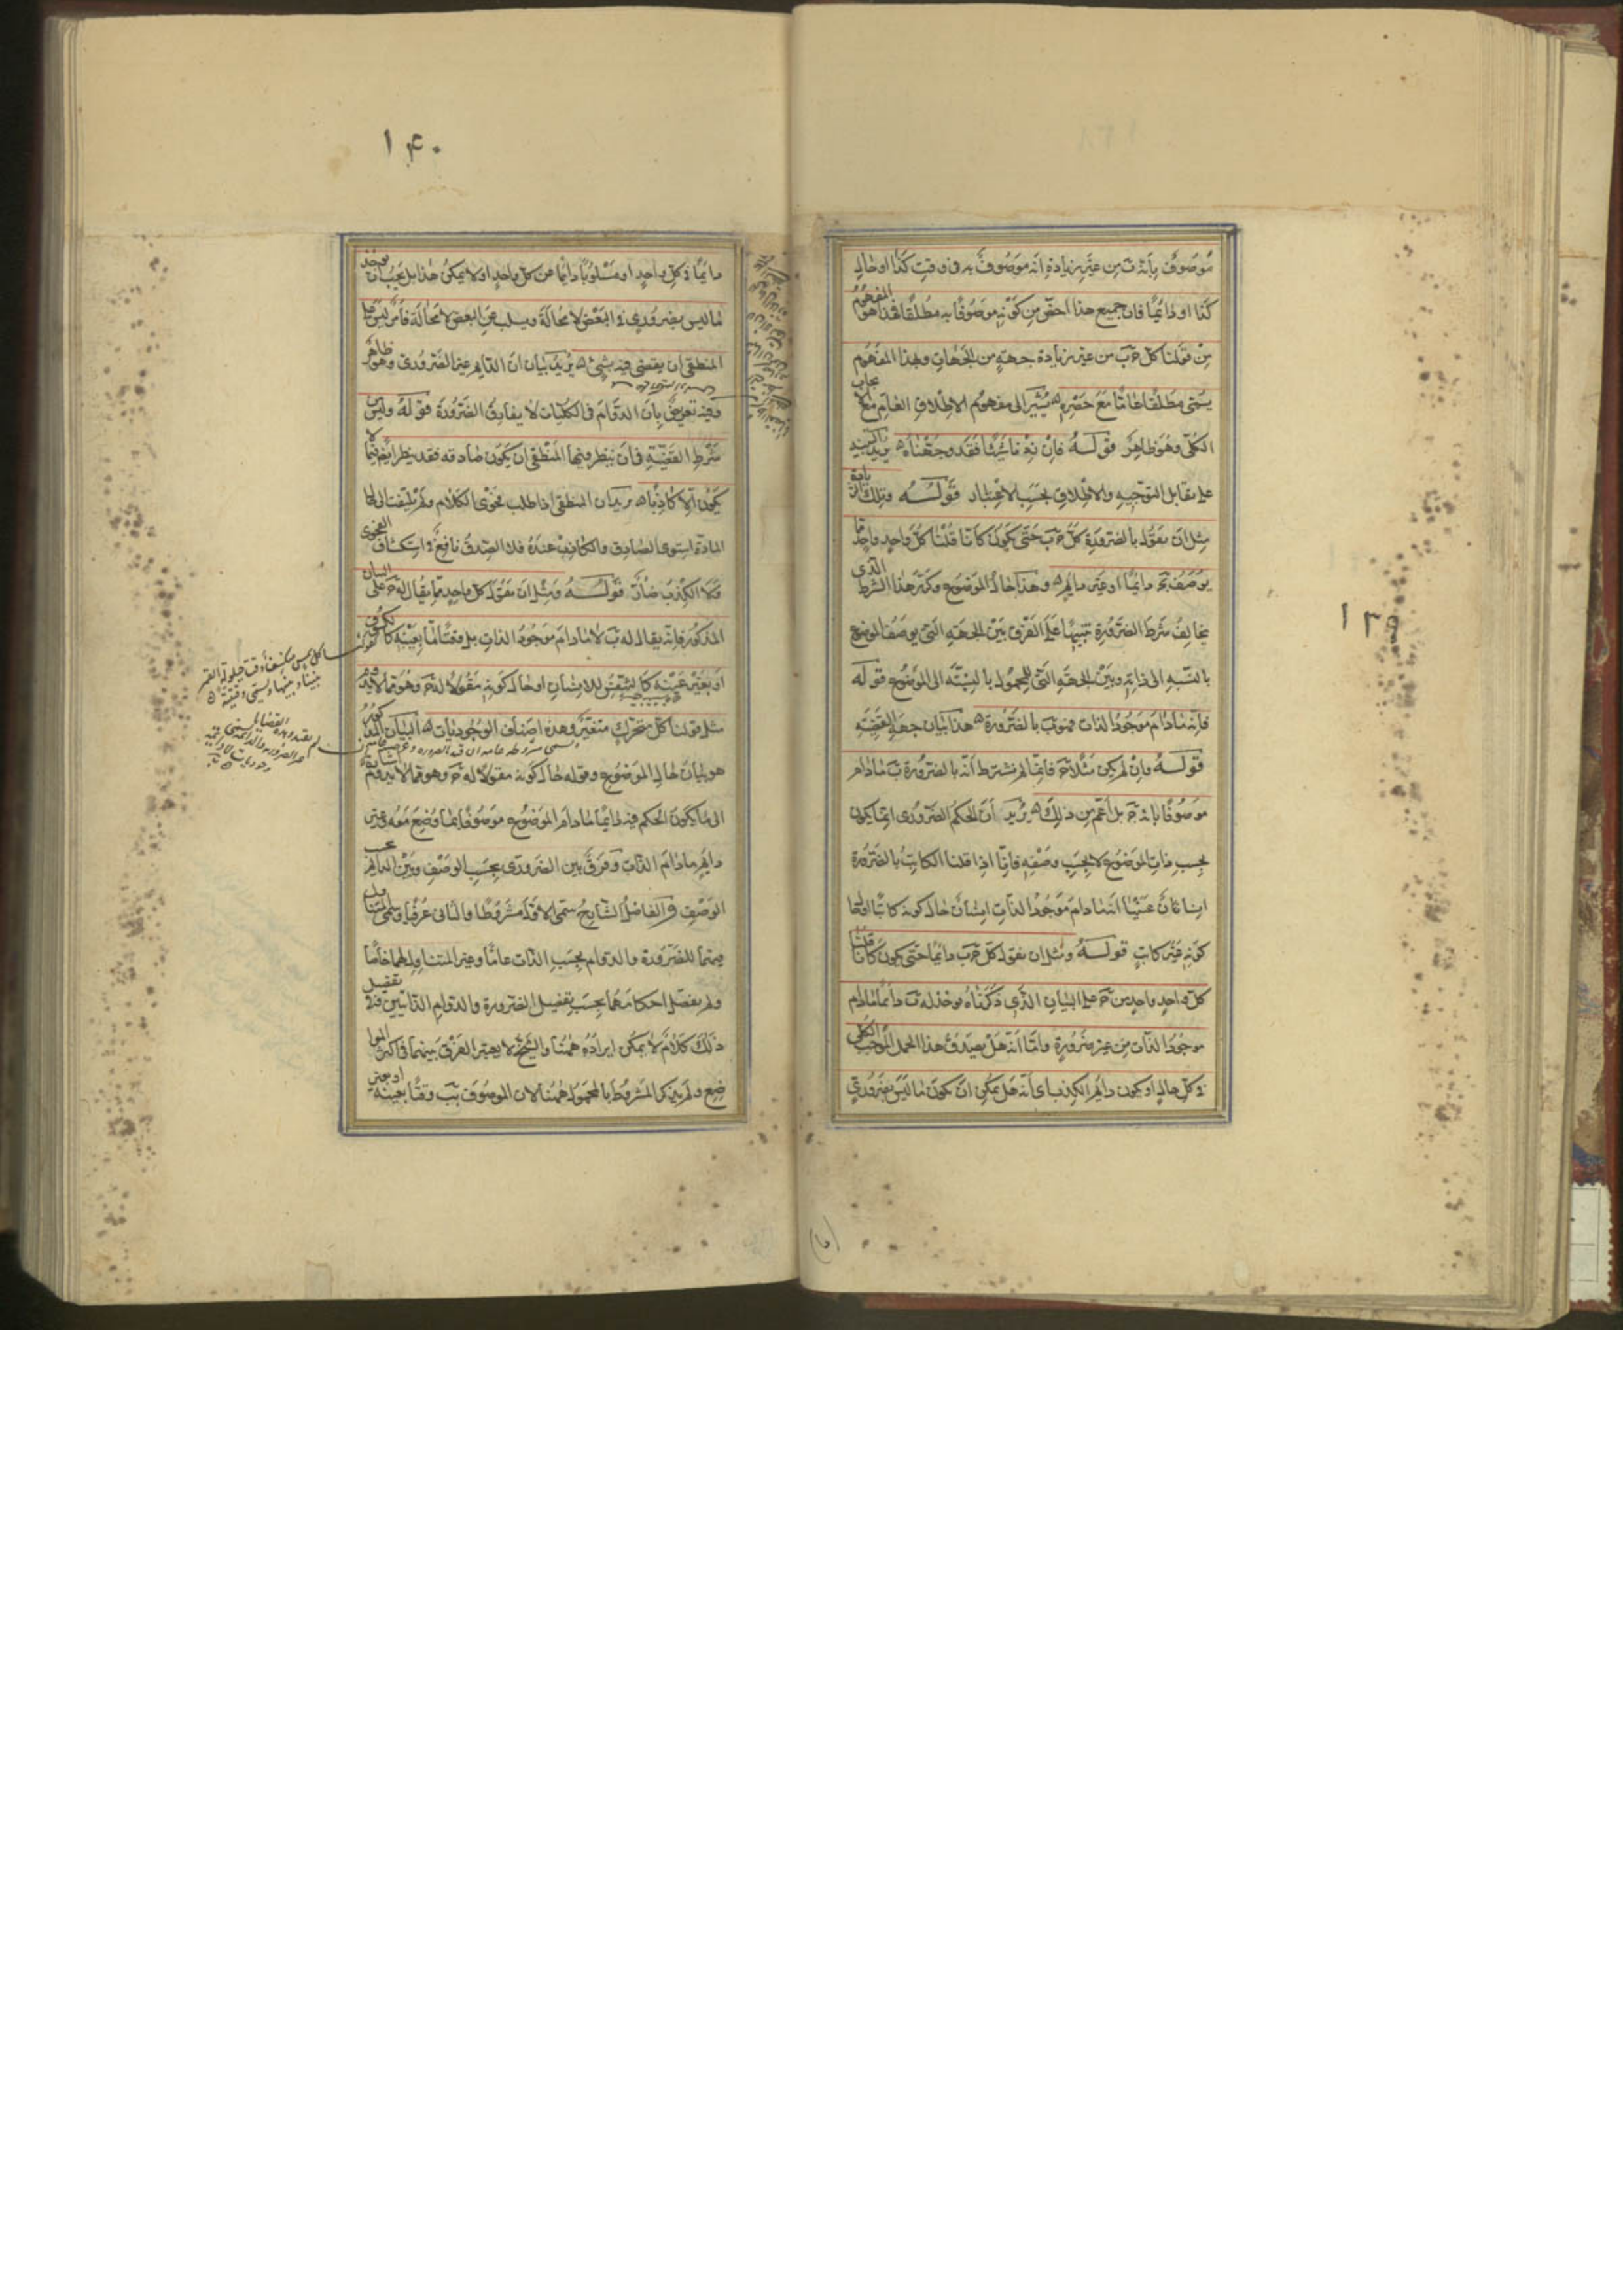 موصوف بانه ب من غير زيادة انه موصوف به فى وقت كذا او حال
كذا او دائما فان جميع هذا اخص من كونه موصوفا به مطلقا فهذا هو المفهوم
من قولنا كل ج ب من غير زيادة جهة من الجهات وبهذا المفهوم
يسمى مطلقا عاما مع حصره ه يشير الى مفهوم الاطلاق العام
الكلى وهو ظاهر قوله فان زدنا شيئا فقد وجهناه ه يريد
على تقابل التوجيه والاطلاق بحسب الاعتبار قوله وتلك الزيادة
مثل ان نقول بالضرورة كل ج ب حتى يكون كانا قلنا كل واحد واحد مما
يوصف بج دائما او غير دائم ه وهذا حال الموضوع وكرر هذا الشرط الذى
يخالف شرط الضرورة تنبيها على الفرق بين الجهة التى يوصف الموضوع
بالنسبه الى ذاته وبين الجهة التى للمحمول بالنسبة الى الموضوع قوله
فانه مادام موجود الذات فهو ب بالضرورة ه هذا بيان جهة القضية
قوله وان لم يكن مثلا ج فانا لم نشترط انه بالضرورة ب مادام
موصوفا بانه ج بل اعم من ذلك ه يريد ان الحكم الضرورى انما يكون
بحسب ذات الموضوع لا بحسب وصفه فانا اذا قلنا الكاتب بالضرورة
انسان عنينا انه مادام موجود الذات انسان حال كونه كاتبا وحال
كونه غير كاتب قوله ومثل ان نقول كل ج ب دائما حتى يكون كانا قلنا
كل واحد واحد من ج على البيان الذى ذكرناه يوجد له ب دائما مادام
موجود الذات من غير ضرورة واما انه هل يصدق هذا الحمل الموجب الكلى
فى كل حال او يكون دائم الكذب اى انه هل يمكن ان يكون ما ليس بضرورى
١٣٩
١۴٠
دائما فى كل واحد او مسلوبا دائما عن كل واحد او لا يمكن هذا بل يجب ان يوجد
ما ليس بضرورى فى البعض لا محالة ويسلب عن البعض لا محالة فامر ليس على
المنطقى ان يقضى فيه بشئ ه يريد بيان ان الدائم غير الضرورى وهو ظاهر
وفيه تعريض بان الدوام فى الكليات لا يفارق الضرورة قوله وليس من
شرط القضية فى ان ينظر فيها المنطقى ان يكون صادقه فقد ينظر ايضا فيما لا
يكون الا كاذبا ه يريد ان المنطقى اذا طلب فحوى الكلام ولم يلتفت الى حال
المادة استوى الصادق والكاذب عنده فلا الصدق نافع فى استكشاف الفحوى
ولا الكذب ضار قوله ومثل ان نقول كل واحد مما يقال له ج على البيان
المذكور فانه يقال له ب لا مادام موجود الذات بل وقتا ما بعينه كالكسوف
او بغير عينه كالتنفس للانسان او حال كونه مقولا له ج وهو مما لا يدوم
مثل قولنا كل متحرك متغير وهذه اصناف الوجوديات ه البيان المذكور
هو بيان حال الموضوع وقوله حال كونه مقولا له ج وهو مما لا يدوم اشارة
الى ما يكون الحكم فيه دائما مادام الموضوع موصوفا بما وضع معه وغير
دائم مادام الذات وفرق بين الضرورى بحسب الوصف وبين الدائم بحسب
الوصف والفاضل الشارح سمى الاول مشروطا والثانى عرفيا وسمى المتناول
منهما للضرورة والدوام بحسب الذات عاما وغير المتناول لهما خاصا
ولم يفصل احكامهما بحسب تفصيل الضرورة والدوام الذاتيين وفى تفصيل
ذلك كلام لا يمكن ايراده ههنا والشيخ لا يعتبر الفرق بينهما فى اكثر الموا
ضع ولم يذكر المشروط بالمحمول ههنا لان الموصوف بب وقتا بعينه او بغير